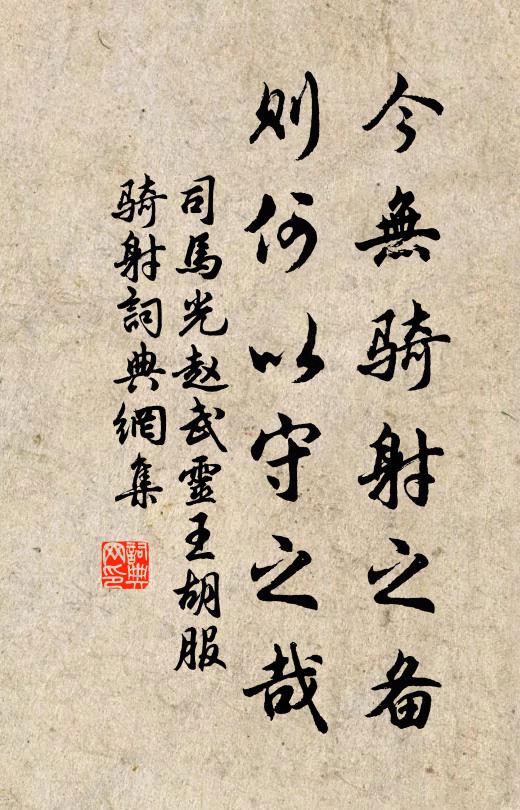 今無骑射之备
则何以守之哉
司馬光赵武靈王胡服
骑射詞典網集
詞典
网印